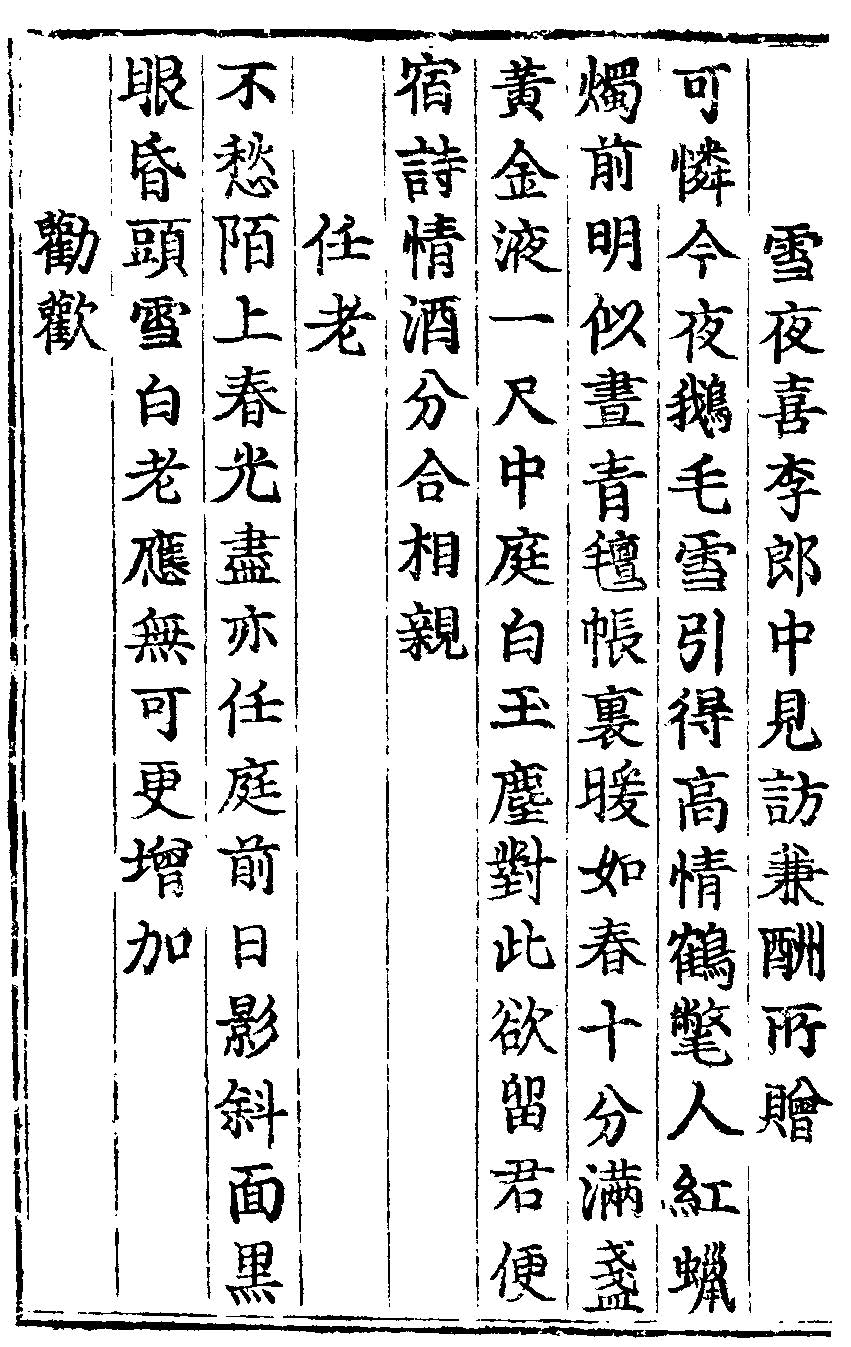 雪夜喜李郎中見訪兼酬所贈
可憐今夜鵝毛雪引得高情鶴氅人紅蠟
燭前明似晝青氊帳裏暖如春十分滿盞
黃金液一尺中庭白玉塵對此欲留君便
宿詩情酒分合相親
任老
不愁陌上春光盡亦任庭前日影斜面黑
眼昏頭雪白老應無可更增加
勸歡